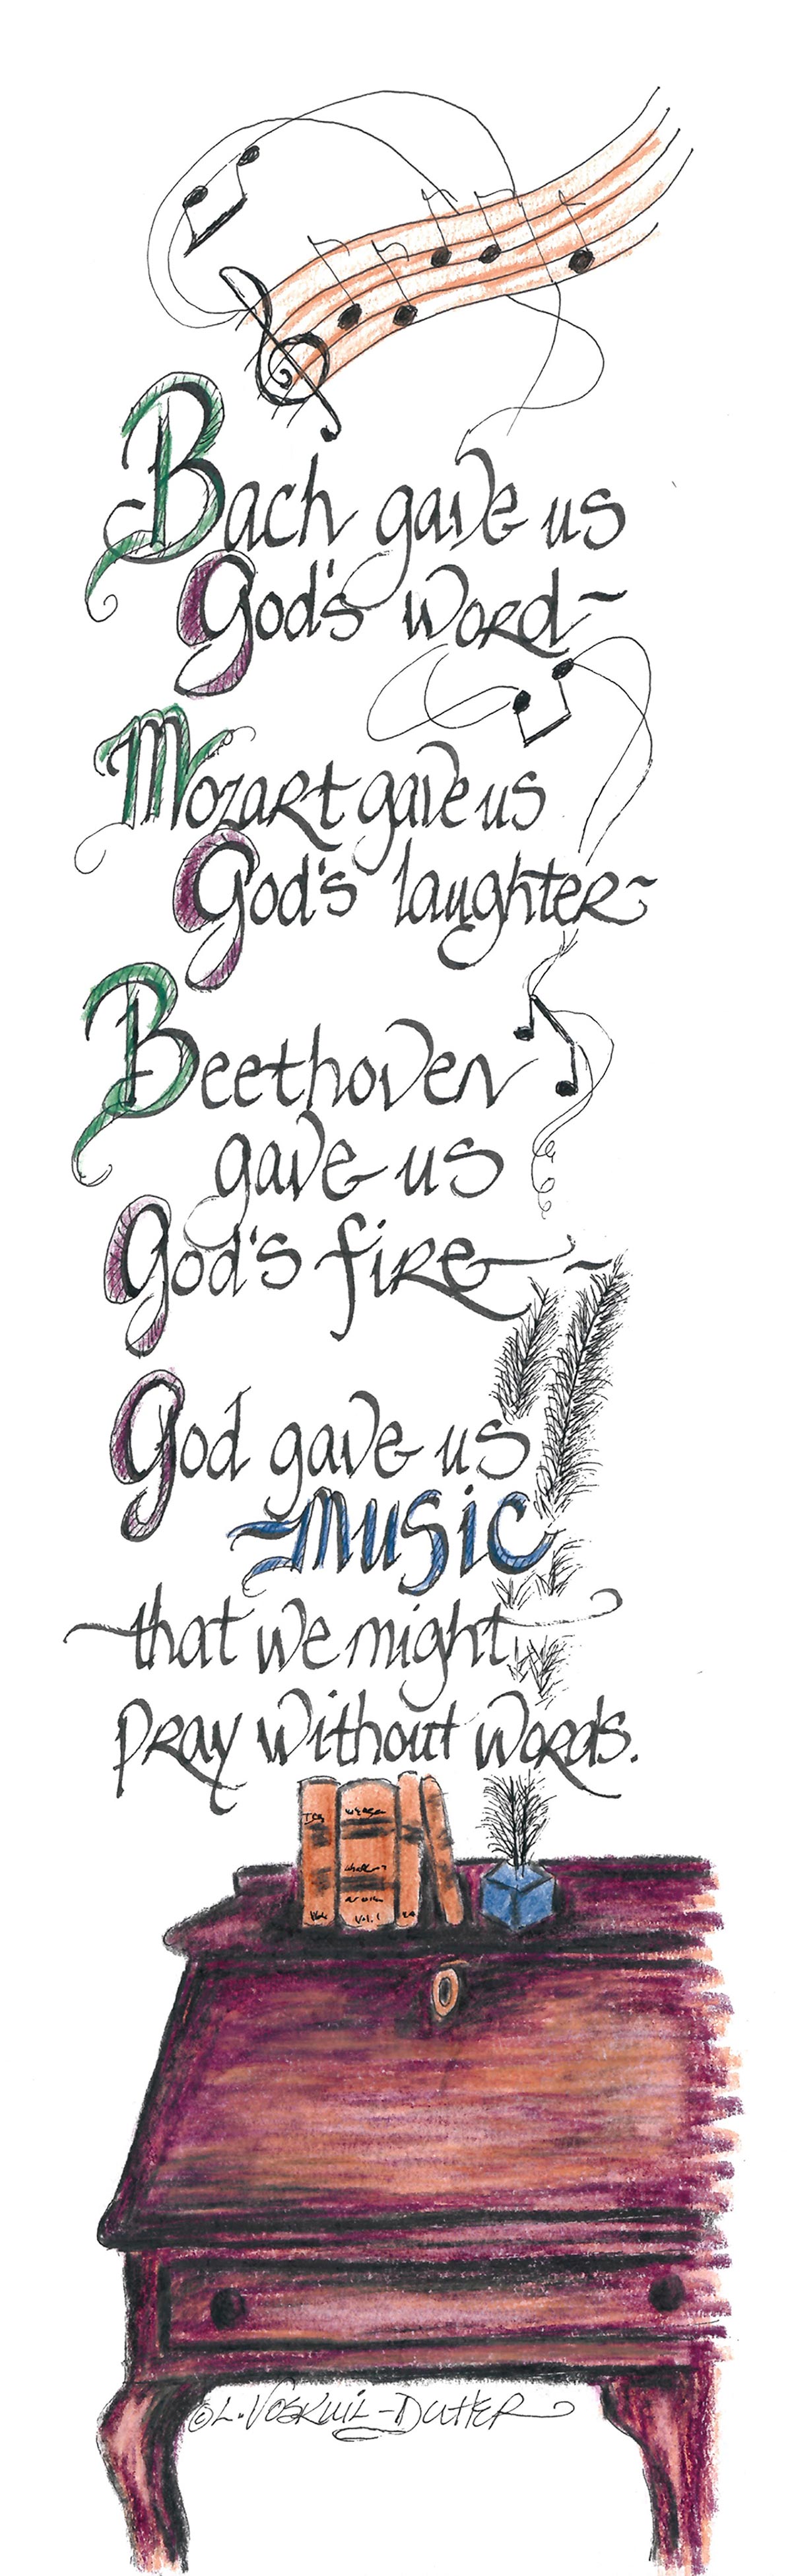 Bach gave us
God's Word~
Mozart gave us
God's laughter~
Beethoven
gave us
God's fire~
God gave us
~music
that we might
pray without words.
Vol. 1
©L. Voskuil-Dutter